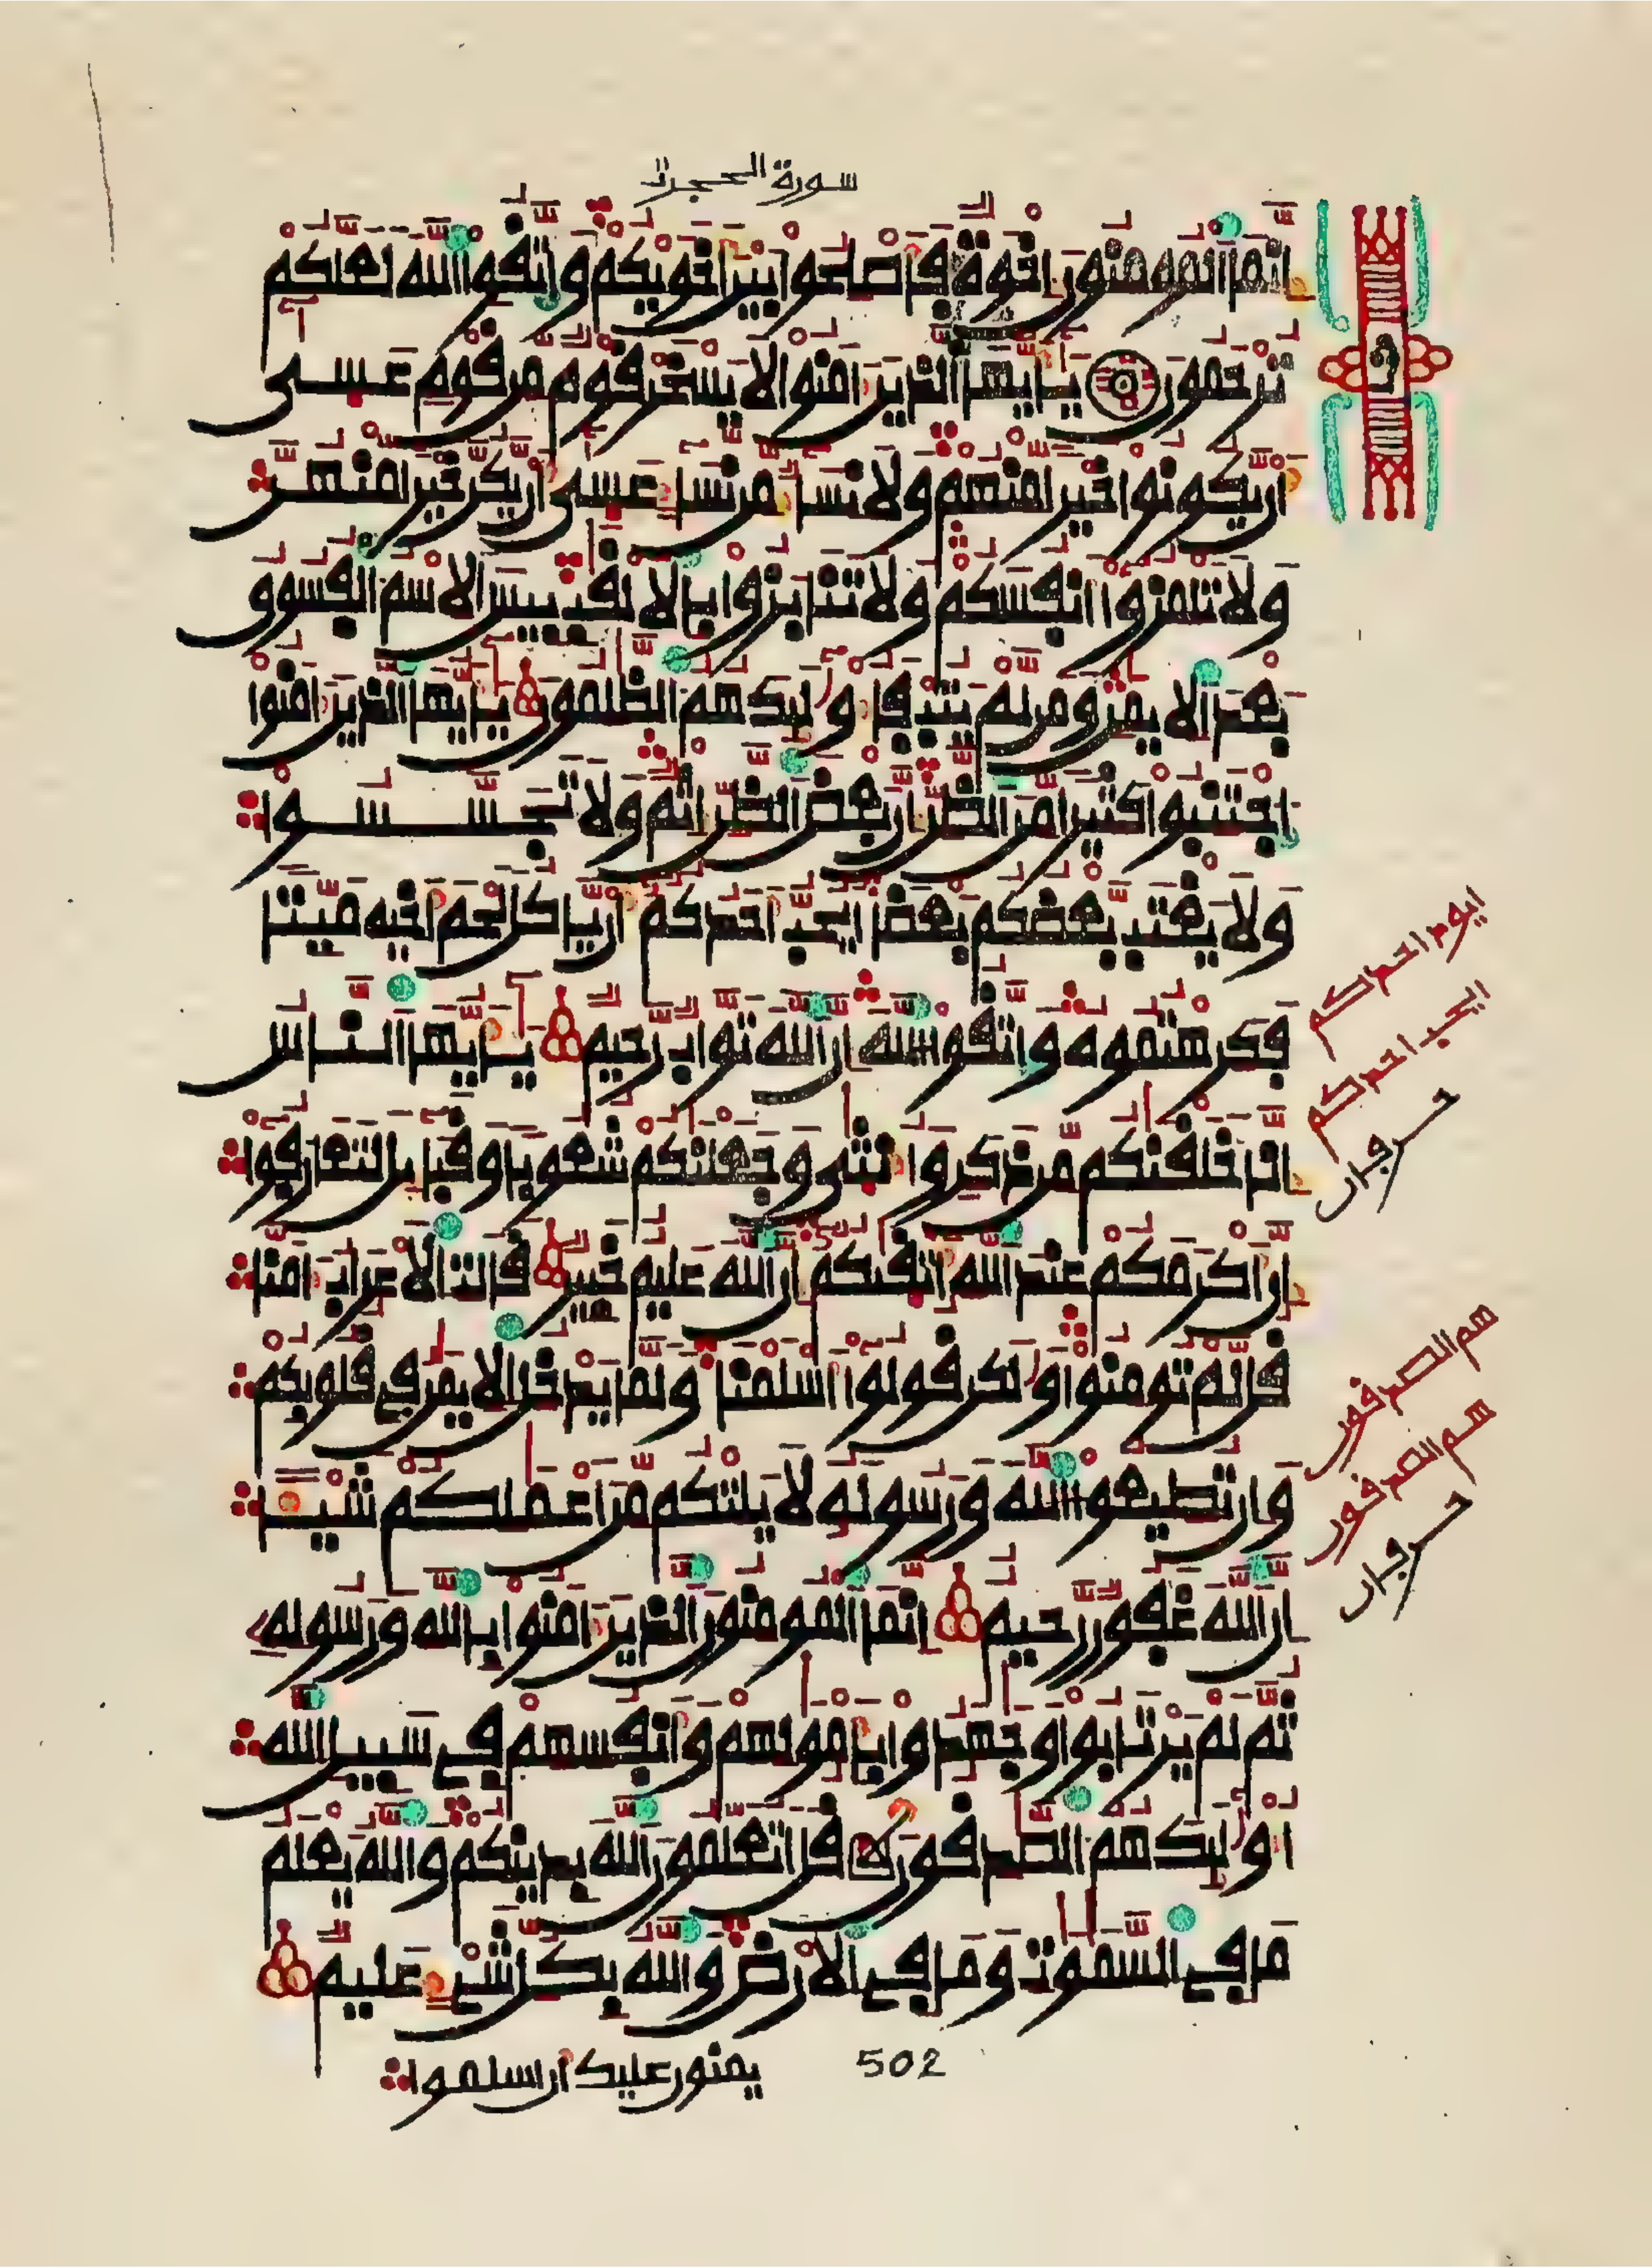 سورة الحجرت
إنما المومنون إخوة فأصلحوا بين أخويكم واتقوا الله لعلكم
ترحمون يأيها الذين ءامنوا لا يسخر قوم من قوم عسى
أن يكونوا خيرا منهم ولا نساء من نساء عسى أن يكن خيرا منهن
ولا تلمزوا أنفسكم ولا تنابزوا بالالقب بيس الاسم الفسوق
بعد الايمن ومن لم يتب فأولئك هم الظلمون يأيها الذين ءامنوا
اجتنبوا كثيرا من الظن إن بعض الظن إثم ولا تجسسوا
ولا يغتب بعضكم بعضا ايحب أحدكم أن ياكل لحم أخيه ميتا
فكرهتموه واتقوا الله إن الله تواب رحيم يأيها الناس
إنا خلقنكم من ذكر وأنثى وجعلنكم شعوبا وقبائل لتعارفوا
إن أكرمكم عند الله أتقىكم إن الله عليم خبير قالت الاعراب ءامنا
قل لم تومنوا ولكن قولوا أسلمنا ولما يدخل الايمن في قلوبكم
وإن تطيعوا الله ورسوله لا يلتكم من أعملكم شيئا
إن الله غفور رحيم إنما المومنون الذين ءامنوا بالله ورسوله
ثم لم يرتابوا وجهدوا بأمولهم وأنفسهم في سبيل الله
أولئك هم الصدقون قل اتعلمون الله بدينكم والله يعلم
ما في السموت وما في الارض والله بكل شيء عليم
يمنون عليك أن اسلموا
502
ايود احدكم
ايحب احدكم
حرفان
هم الصدقون
هم الصدقون
حرفان